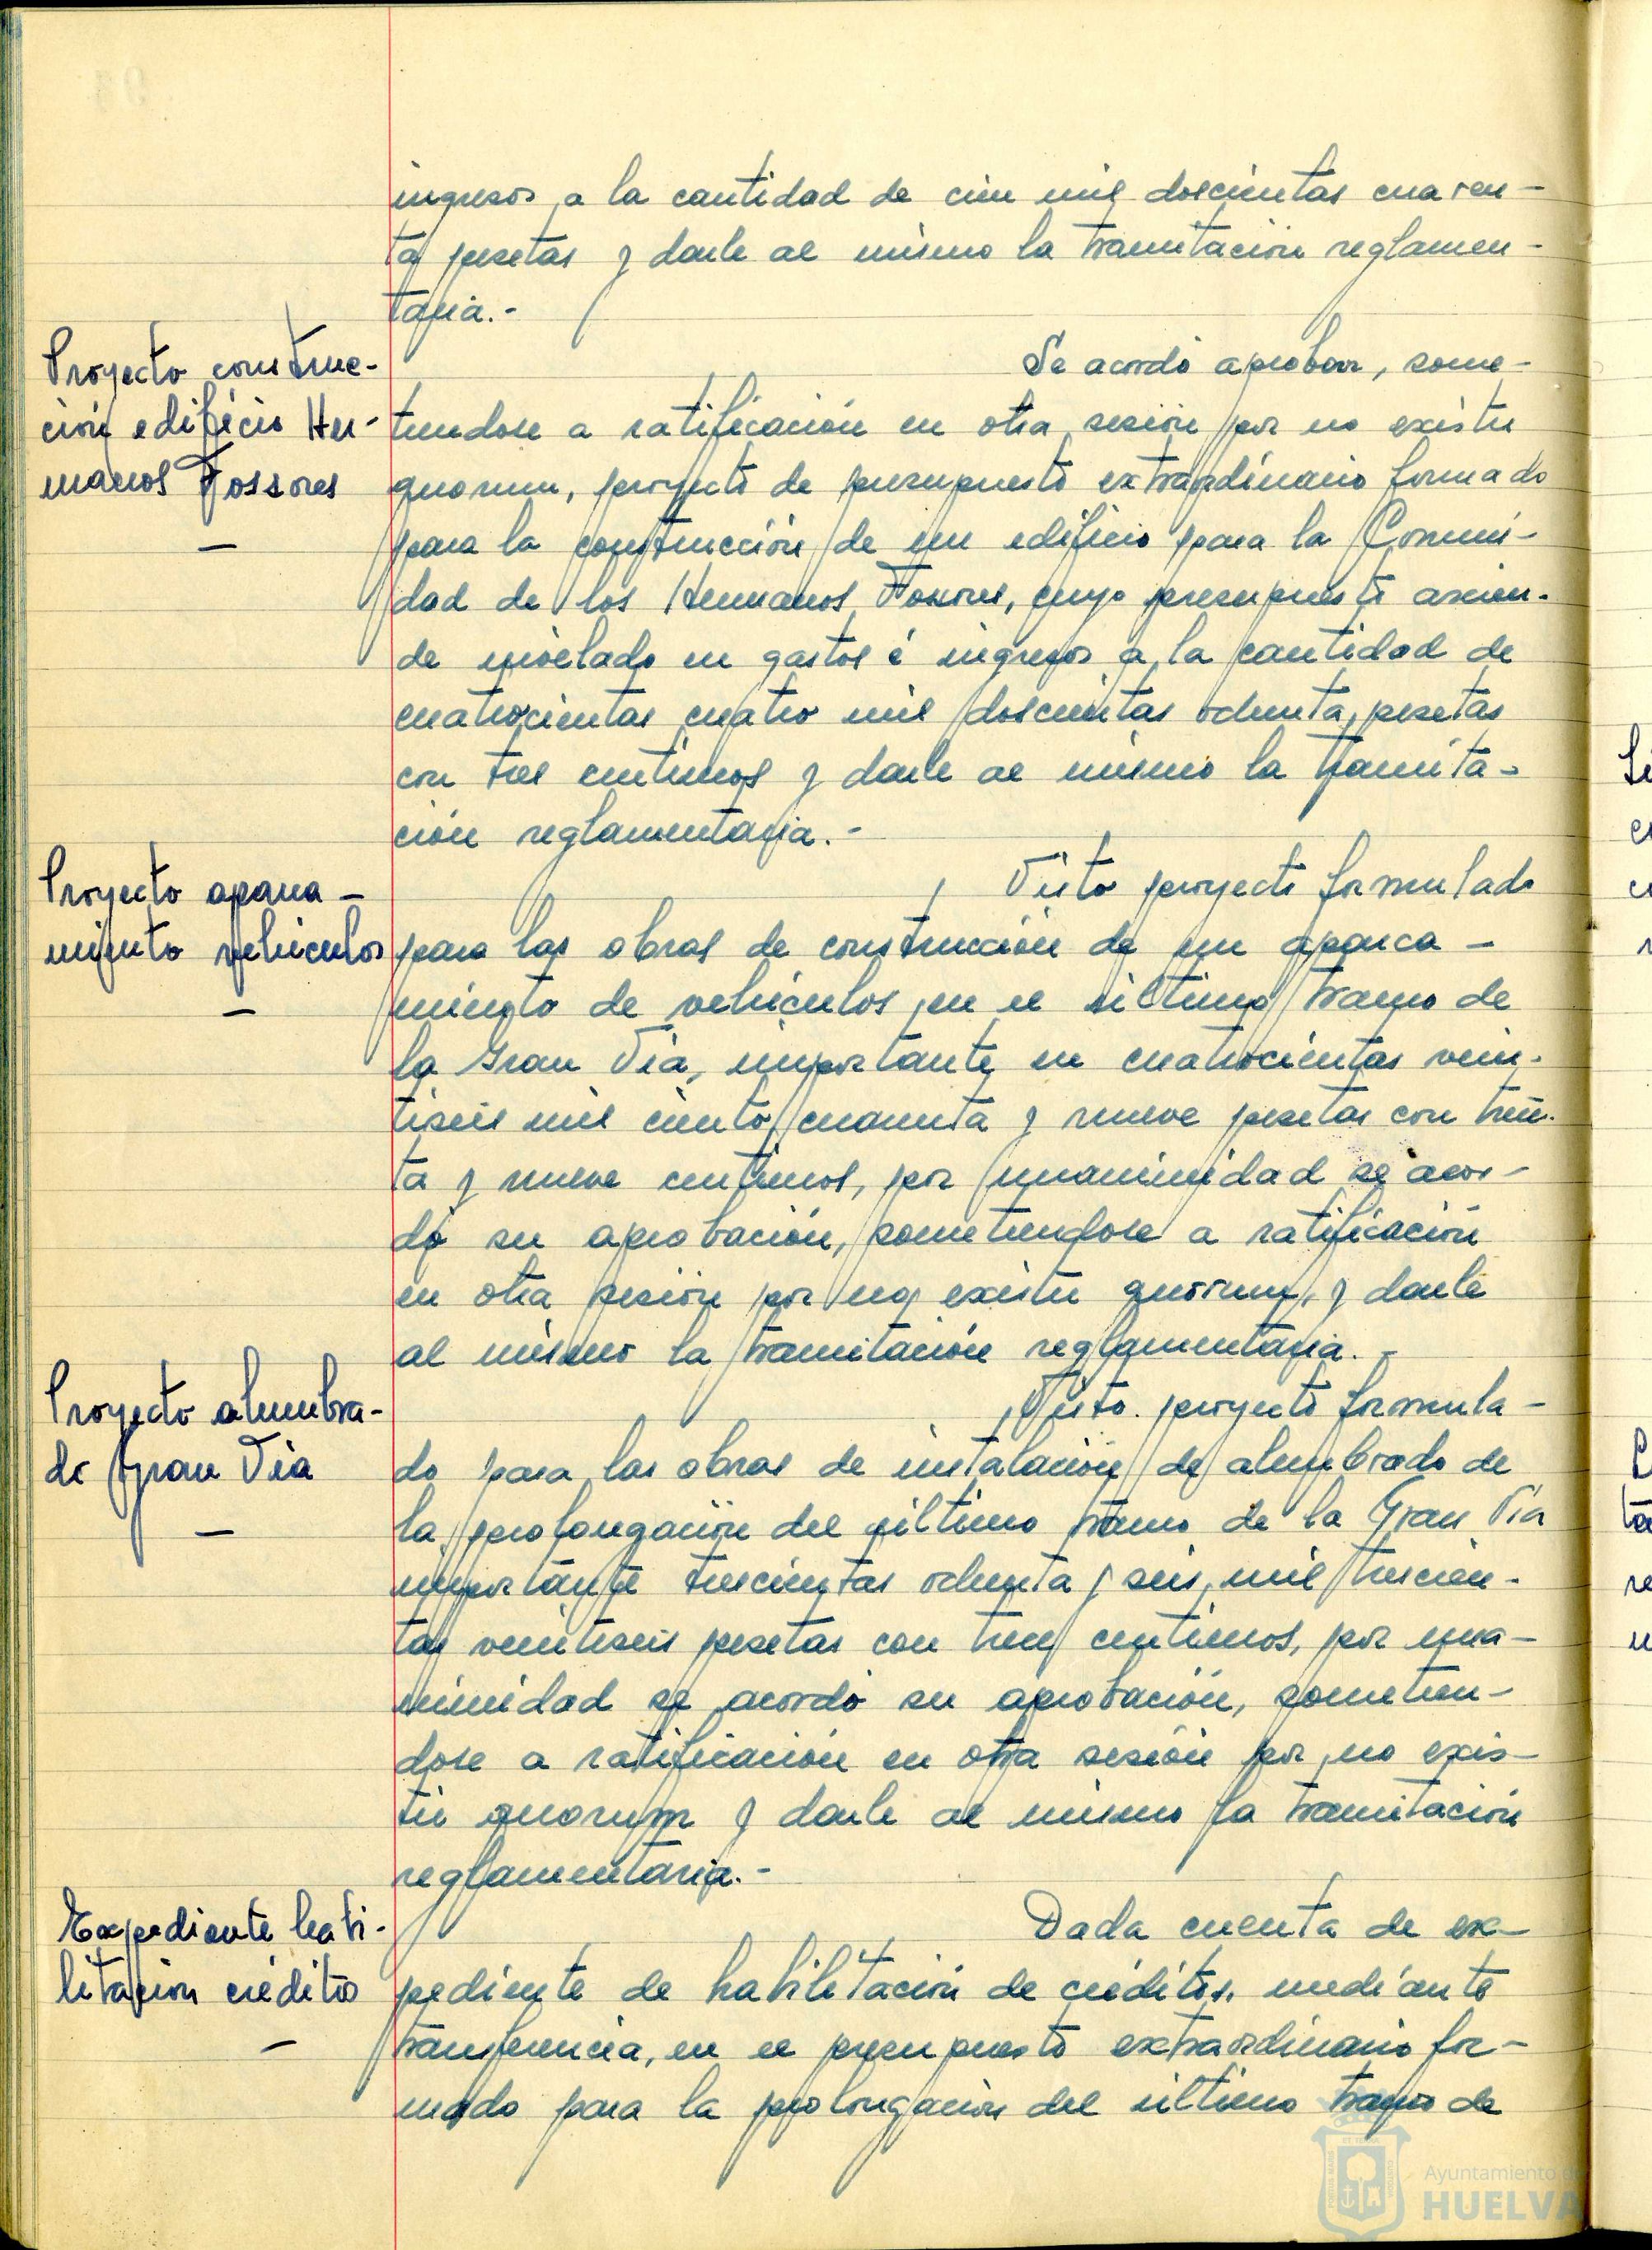 ingresos a la cantidad de cien mil doscientas cuaren-
ta pesetas y darle al mismo la tramitación reglamen-
taria.-
Proyecto construc-
ción edificio Her-
manos Fossores
—
Se acordó aprobar, some-
tiendose a ratificación en otra sesión por no existir
quorum, proyecto de presupuesto extraordinario formado
para la construcción de un edificio para la Comuni-
dad de los Hermanos Fossores, cuyo presupuesto ascien-
de nivelado en gastos é ingresos a la cantidad de
cuatrocientas cuatro mil doscientas ochenta pesetas
con tres centimos y darle al mismo la tramita-
ción reglamentaria.-
Proyecto aparca-
miento vehiculos
—
Visto proyecto formulado
para las obras de construcción de un aparca-
miento de vehículos en el último tramo de
la Gran Vía, importante en cuatrocientas vein-
tiseis mil ciento cuarenta y nueve pesetas con trein-
ta y nueve centimos, por unanimidad se acor-
dó su aprobación, sometiendose a ratificación
en otra sesión por no existir quorum, y darle
al mismo la tramitación reglamentaria.-
Proyecto alumbra-
do Gran Via
—
Visto proyecto formula-
do para las obras de instalación de alumbrado de
la prolongación del último tramo de la Gran Vía
importante trescientas ochenta y seis mil trescien-
tas veintiseis pesetas con trece centimos, por una-
nimidad se acordó su aprobación, sometien-
dose a ratificación en otra sesión por no exis-
tir quorum y darle al mismo la tramitación
reglamentaria.-
Expediente habi-
litación crédito
—
Dada cuenta de ex-
pediente de habilitación de créditos, mediante
transferencia, en el presupuesto extraordinario for-
mado para la prolongación del último tramo de
Ayuntamiento de
HUELVA